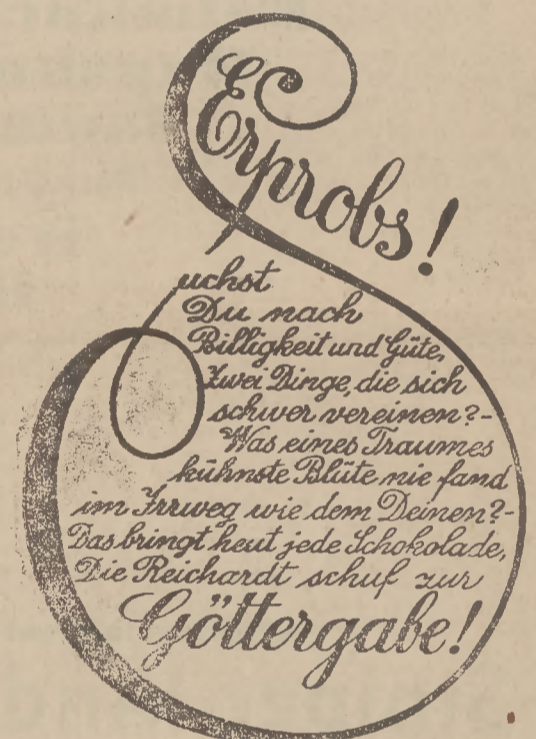 Erprobs!
Suchst
Du nach
Billigkeit und Güte,
Zwei Dinge, die sich
schwer vereinen?-
Was eines Traumes
kühnste Blüte nie fand
im Irrweg wie dem Deinen?-
Das bringt heut jede Schokolade,
Die Reichardt schuf zur
Göttergabe!